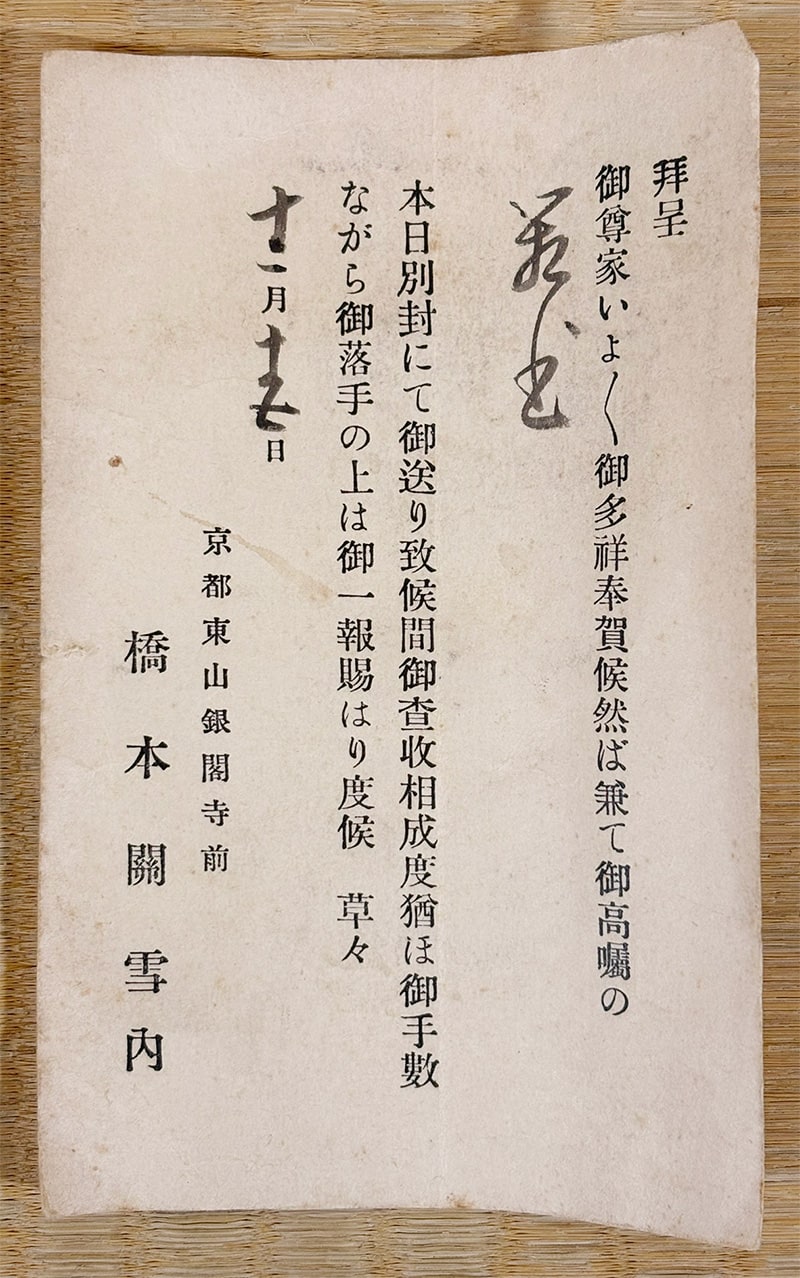 拜呈
御尊家いよ〳〵御多祥奉賀候然ば兼て御高囑の
本日別封にて御送り致候間御査收相成度猶ほ御手數
ながら御落手の上は御一報賜はり度候　草々
十一月十五日
京都東山銀閣寺前
橋本關雪内